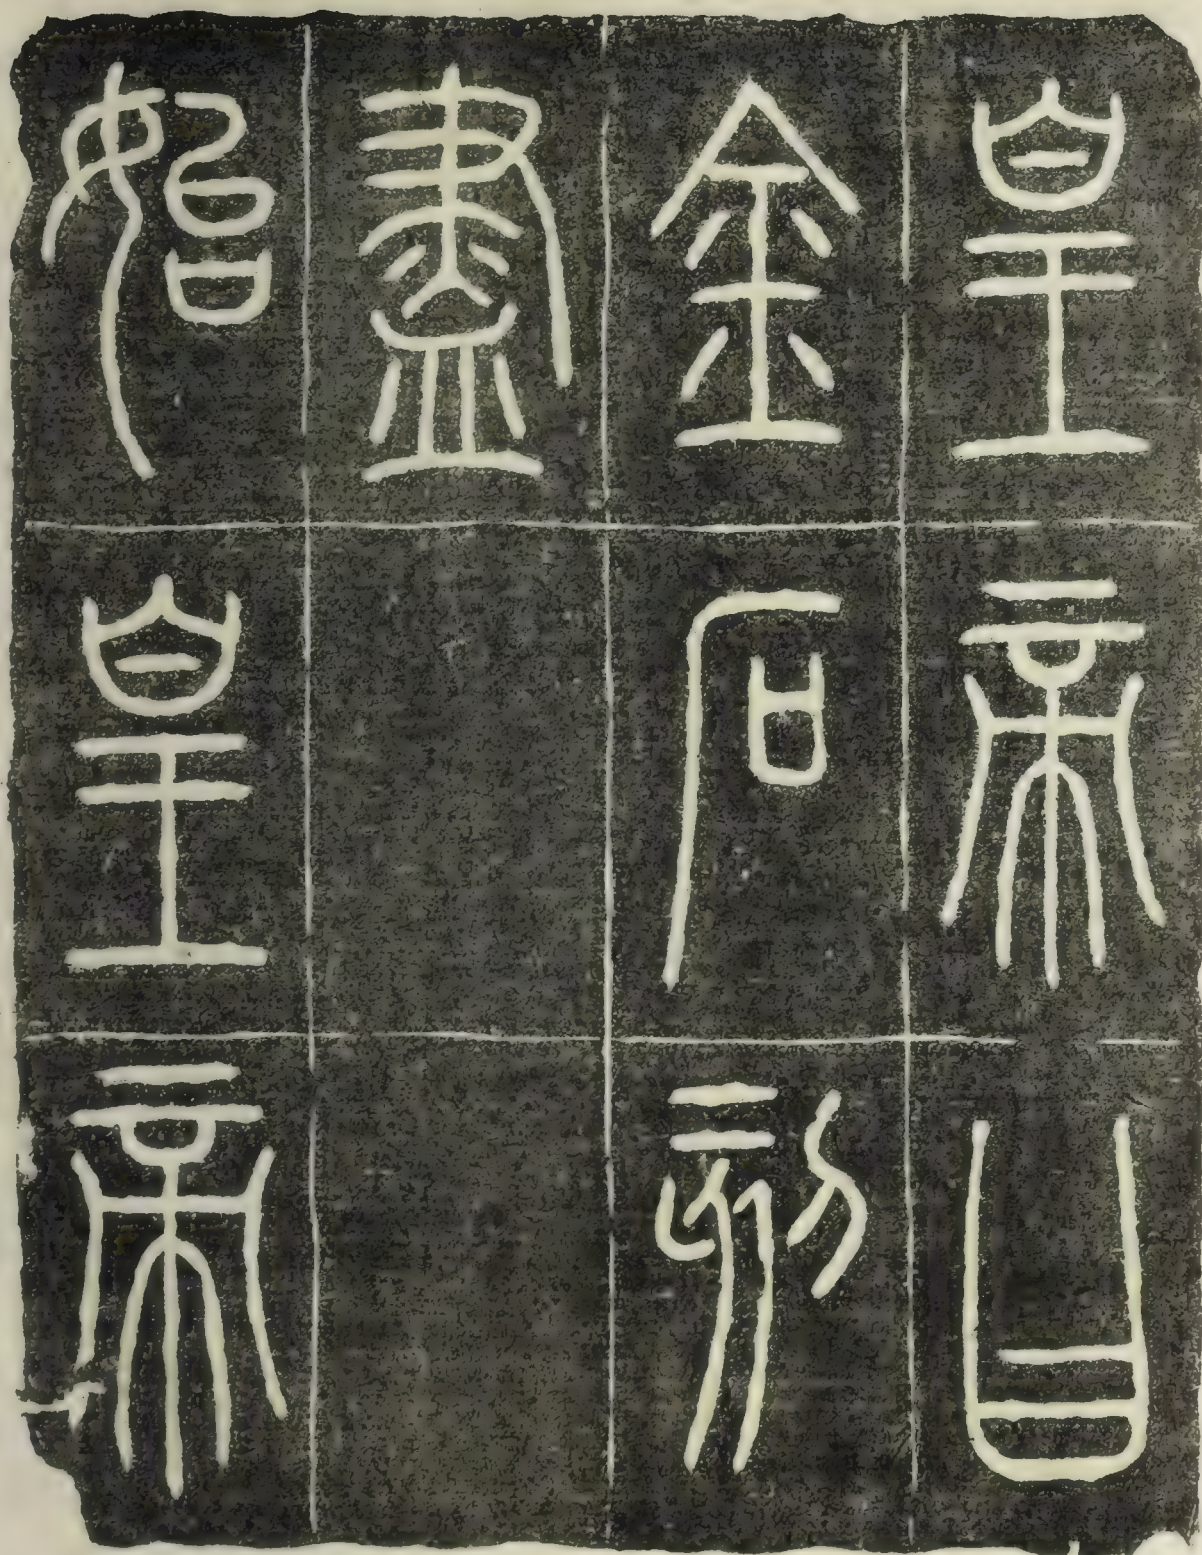 皇帝曰
金石刻
盡
始皇帝